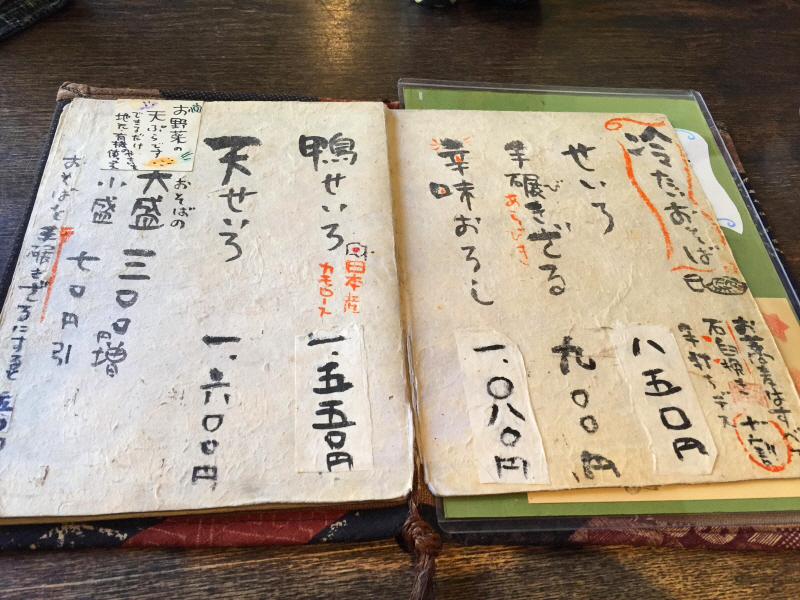 冷たいおそば
石臼挽き
十割
せいろ 八五〇円
手碾きざる 九〇〇円
び
あらびき
辛味おろし 一、〇八〇円
鴨せいろ 一、五五〇円
日本産
カモロース
天せいろ 一、六〇〇円
お野菜の
天ぷらです
できるだけ
地元有機
おそばの
大盛 三〇〇円増
小盛 七〇円引
おそばを手碾きざるにすると